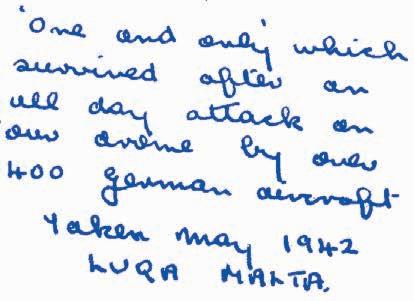 'one and only' which
survived after an
all day attack on
our drome by over
400 german aircraft
Taken may 1942
LUQA MALTA.